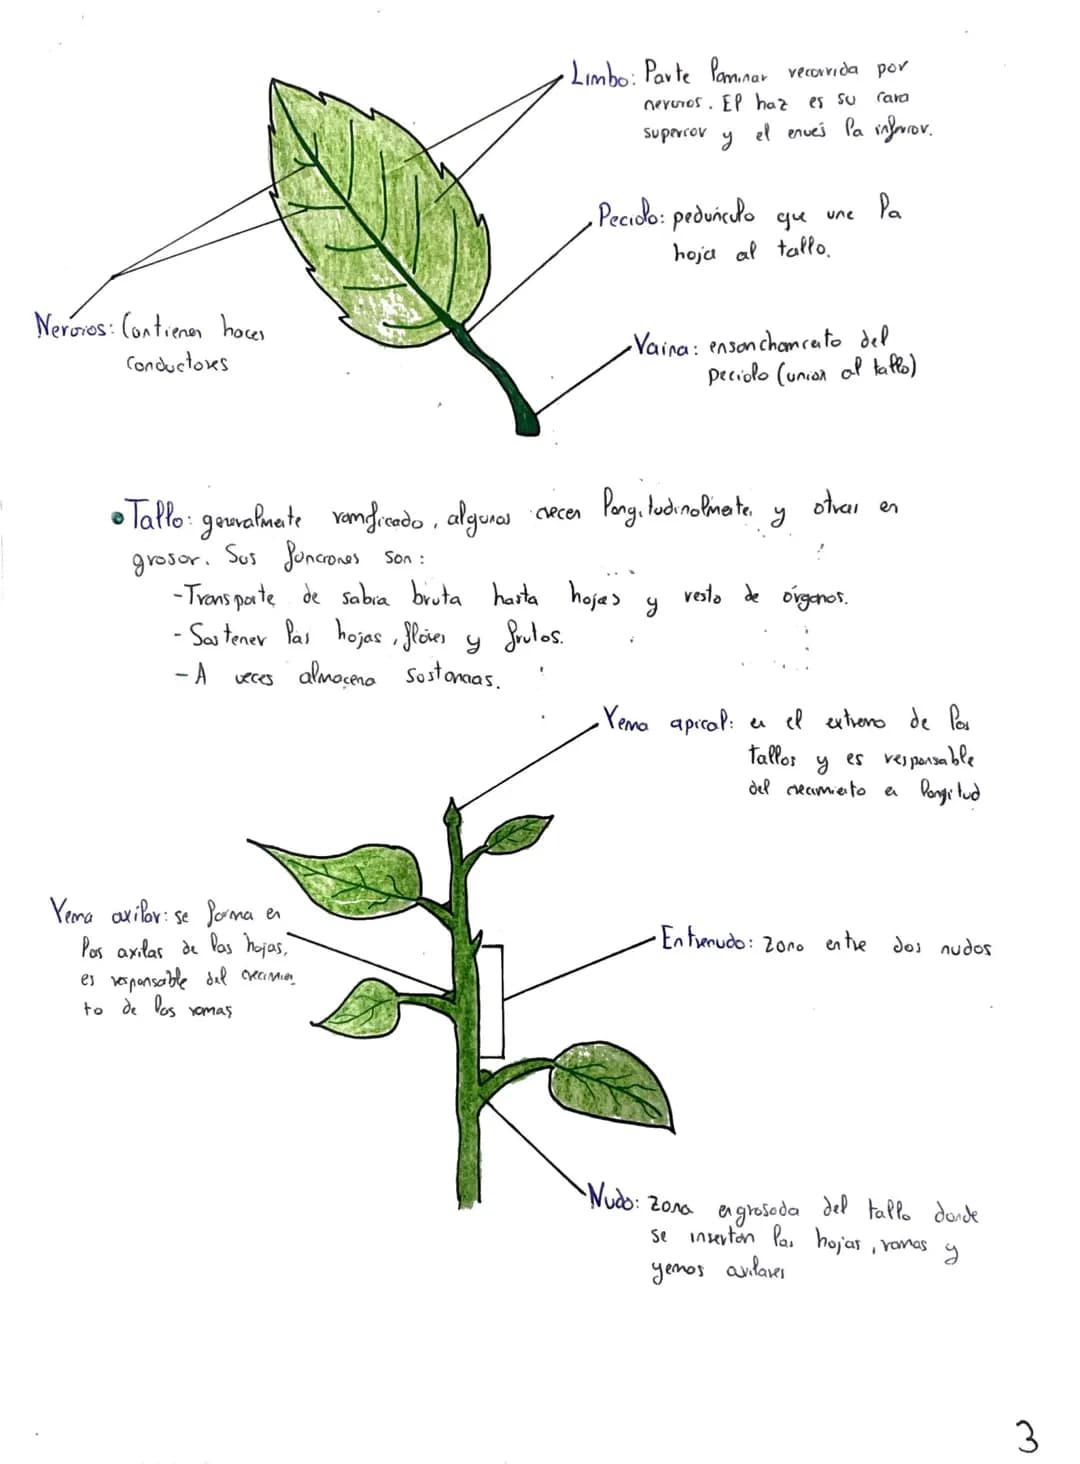 Limbo: Parte laminar recorrida por
nervios. El haz es su cara
superior y el envés la inferior.
Peciolo: pedúnculo que une la
hoja al tallo.
Nervios: Contienen haces
conductores
Vaina: ensanchamiento del
peciolo (unión al tallo)
• Tallo: generalmente ramificado, algunos crecen longitudinalmente y otros en
grosor. Sus funciones son:
-Transporte de sabia bruta hasta hojas y resto de órganos.
- Sostener las hojas, flores y frutos.
- A veces almacena sustancias.
Yema apical: en el extremo de los
tallos y es responsable
del crecimiento en longitud
Yema axilar: se forma en
las axilas de las hojas,
es responsable del crecimien
to de las ramas
Entrenudo: zona entre dos nudos
Nudo: zona engrosada del tallo donde
se insertan las hojas, ramas y
yemas axilares
3